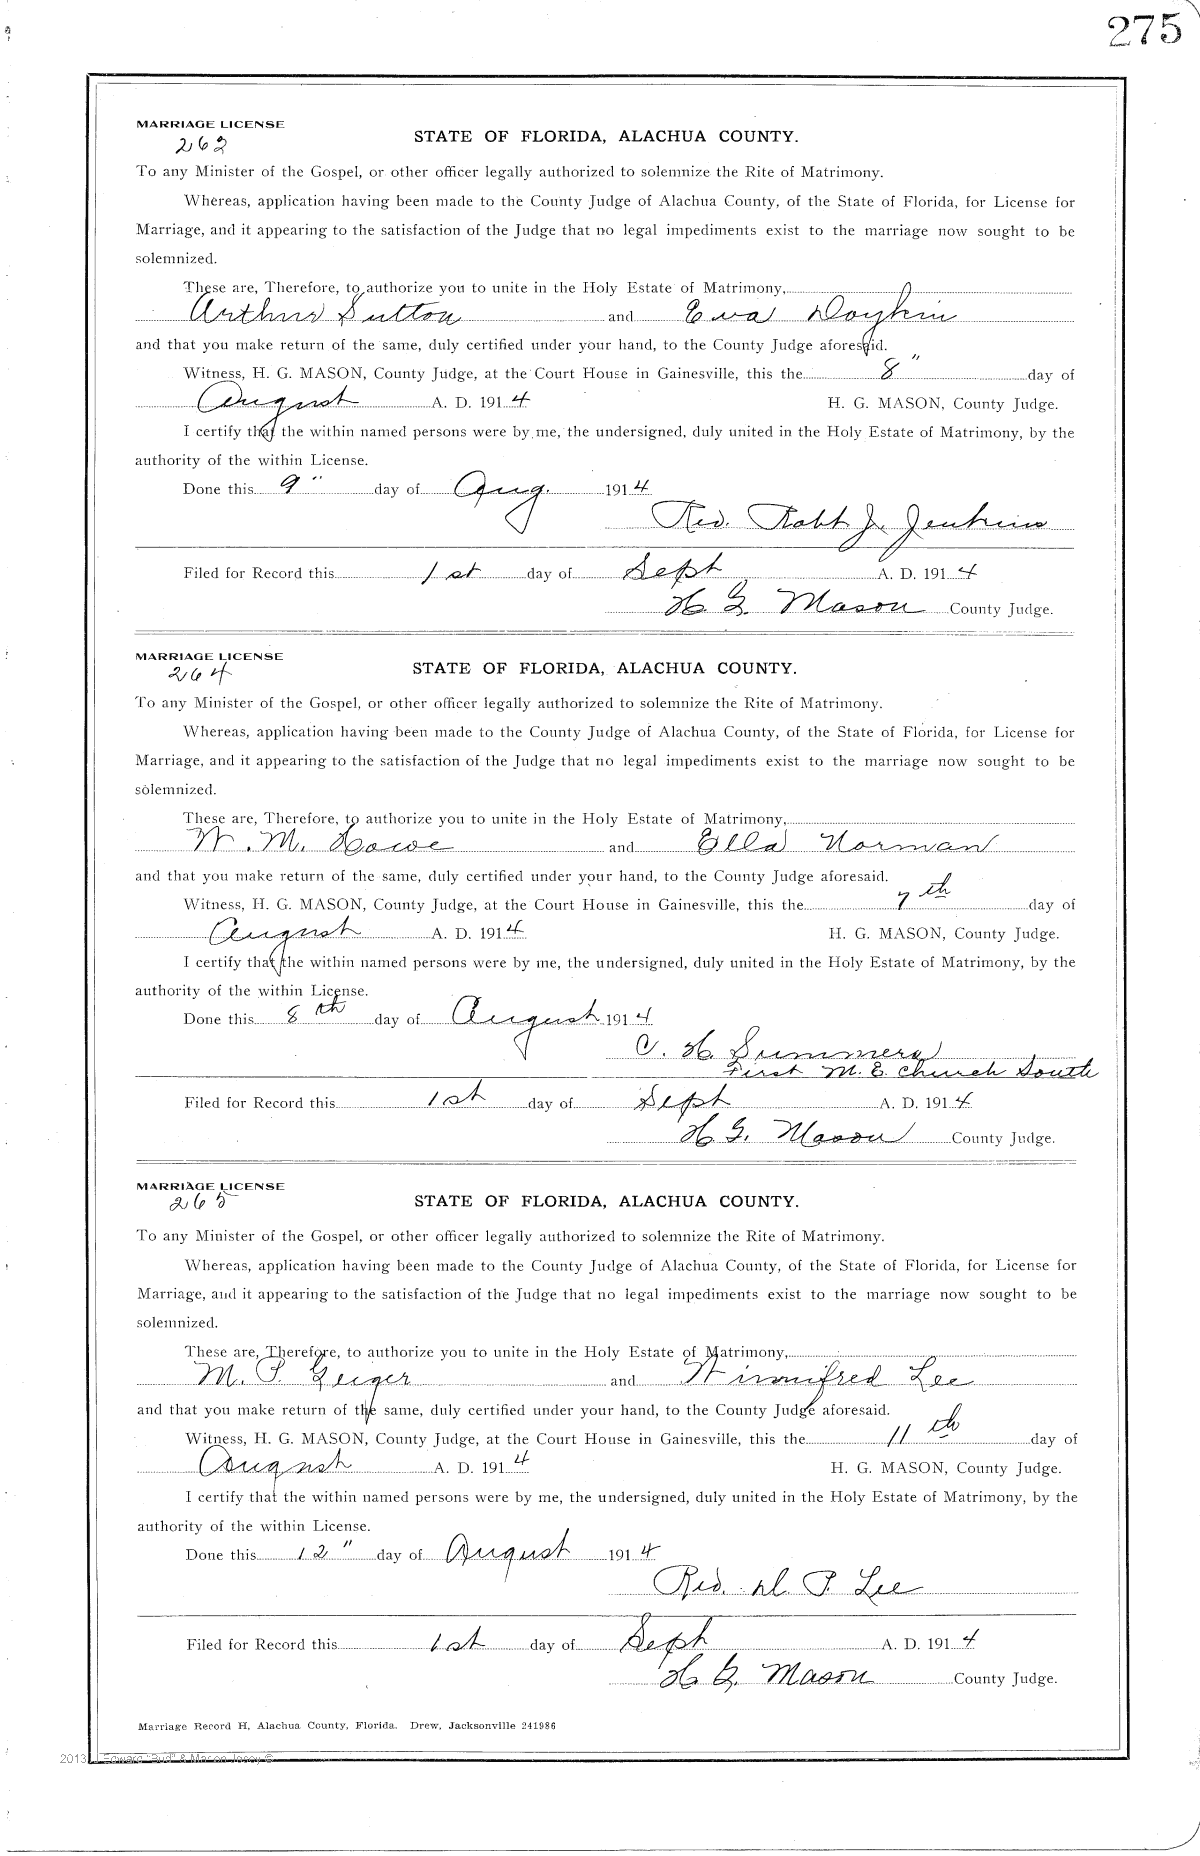 275
MARRIAGE LICENSE
262
STATE OF FLORIDA, ALACHUA COUNTY.
To any Minister of the Gospel, or other officer legally authorized to solemnize the Rite of Matrimony.
Whereas, application having been made to the County Judge of Alachua County, of the State of Florida, for License for
Marriage, and it appearing to the satisfaction of the Judge that no legal impediments exist to the marriage now sought to be
solemnized.
These are, Therefore, to authorize you to unite in the Holy Estate of Matrimony,
Arthur Sutton and Eva Doykin
and that you make return of the same, duly certified under your hand, to the County Judge aforesaid.
Witness, H. G. MASON, County Judge, at the Court House in Gainesville, this the 8" day of
August A. D. 1914 H. G. MASON, County Judge.
I certify that the within named persons were by me, the undersigned, duly united in the Holy Estate of Matrimony, by the
authority of the within License.
Done this 9" day of Aug. 1914
Rev. Robt J. Jenkins
Filed for Record this 1st day of Sept A. D. 1914
H. G. Mason County Judge.
MARRIAGE LICENSE
264
STATE OF FLORIDA, ALACHUA COUNTY.
To any Minister of the Gospel, or other officer legally authorized to solemnize the Rite of Matrimony.
Whereas, application having been made to the County Judge of Alachua County, of the State of Florida, for License for
Marriage, and it appearing to the satisfaction of the Judge that no legal impediments exist to the marriage now sought to be
solemnized.
These are, Therefore, to authorize you to unite in the Holy Estate of Matrimony,
W. M. Howe and Ella Norman
and that you make return of the same, duly certified under your hand, to the County Judge aforesaid.
Witness, H. G. MASON, County Judge, at the Court House in Gainesville, this the 7th day of
August A. D. 1914 H. G. MASON, County Judge.
I certify that the within named persons were by me, the undersigned, duly united in the Holy Estate of Matrimony, by the
authority of the within License.
Done this 8th day of August 1914
C. H. Summers
First M. E. Church South
Filed for Record this 1st day of Sept A. D. 1914
H G. Mason County Judge.
MARRIAGE LICENSE
265
STATE OF FLORIDA, ALACHUA COUNTY.
To any Minister of the Gospel, or other officer legally authorized to solemnize the Rite of Matrimony.
Whereas, application having been made to the County Judge of Alachua County, of the State of Florida, for License for
Marriage, and it appearing to the satisfaction of the Judge that no legal impediments exist to the marriage now sought to be
solemnized.
These are, Therefore, to authorize you to unite in the Holy Estate of Matrimony,
M. P. Geiger and Winnifred Lee
and that you make return of the same, duly certified under your hand, to the County Judge aforesaid.
Witness, H. G. MASON, County Judge, at the Court House in Gainesville, this the 11th day of
August A. D. 1914 H. G. MASON, County Judge.
I certify that the within named persons were by me, the undersigned, duly united in the Holy Estate of Matrimony, by the
authority of the within License.
Done this 12" day of August 1914
Rev. P. Lee
Filed for Record this 1st day of Sept A. D. 1914
H. G. Mason County Judge.
Marriage Record H, Alachua County, Florida. Drew, Jacksonville 241986
2013 Edward "Bud" &